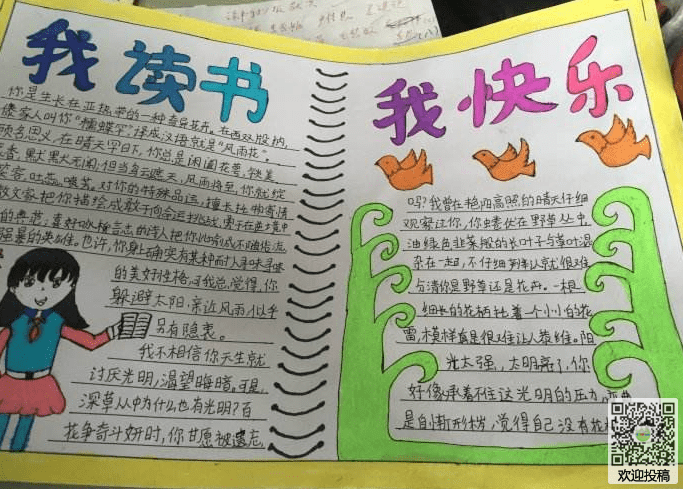 我读书
你是生长在亚热带的一种奇异花卉。在西双版纳,
傣家人叫你“糯蝶罕”,译成汉语就是“风雨花”。
顾名思义,在晴天平日下,你总是闲阖花萼,缺美
默黑无闻,但当乌云遮天,风雨将至,你就绽
吐蕊,嘻笑。对你的特殊品德,擅长托物寄情
散文家把你描绘成敢于向命运挑战,勇于在逆境中
的典范;喜好咏梅言志的诗人把你比喻成不随俗流
的英雄。也许,你身上确实有某种耐人寻味寻
的美好性格,可我总觉得,你
躲避太阳,亲近风雨,似乎
另有隐衷。
我不相信你天生就
讨厌光明,渴望晦暗。可是,
深草从中为什么也有光明?百
花争奇斗妍时,你甘愿被遗忘,
我快乐
吗?我曾在艳阳高照的晴天仔细
观察过你,你蜷伏在野草丛中,
油绿色韭菜般的长叶子与草叶混
杂在一起,不仔细辨认就很难
分清你是野草还是花卉。一根
细长的花柄托着一个小小的花
蕾,模样真是很难让人恭维。阳
光太强,太明亮了,你
好像承着不住这光明的压力,
是自惭形秽,觉得自己没有花
欢迎投稿